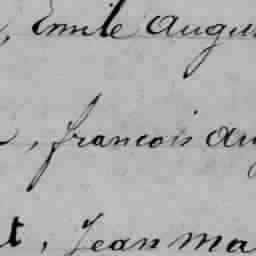 , Emile Augu
, françois Au
t, Jean Ma